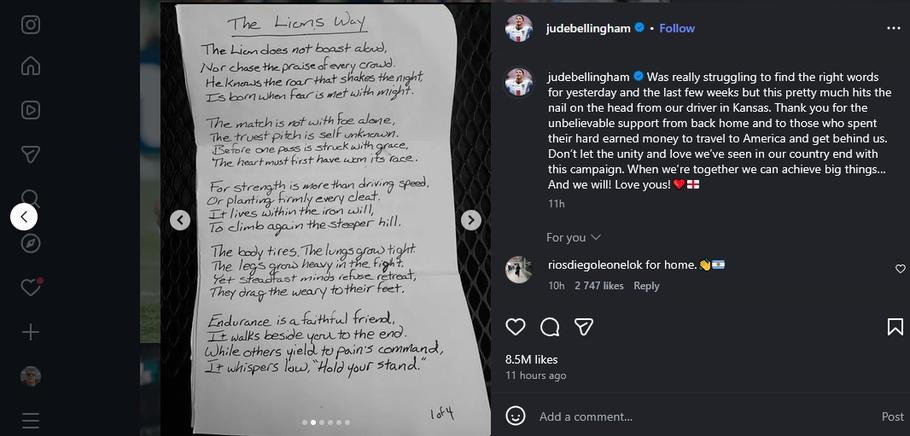 The Lions Way
The Lion does not boast aloud,
Nor chase the praise of every crowd.
He knows the roar that shakes the night
Is born when fear is met with might.
The match is not with foe alone,
The truest pitch is self unknown.
Before one pass is struck with grace,
The heart must first have won its race.
For strength is more than driving speed,
Or planting firmly every cleat.
It lives within the iron will,
To climb again the steeper hill.
The body tires, The lungs grow tight
The legs grow heavy in the fight.
Yet steadfast minds refuse retreat,
They drag the weary to their feet.
Endurance is a faithful friend,
It walks beside you to the end.
While others yield to pain's command,
It whispers low, "Hold your stand."
1 of 4
judebellingham • Follow
judebellingham Was really struggling to find the right words
for yesterday and the last few weeks but this pretty much hits the
nail on the head from our driver in Kansas. Thank you for the
unbelievable support from back home and to those who spent
their hard earned money to travel to America and get behind us.
Don't let the unity and love we've seen in our country end with
this campaign. When we're together we can achieve big things...
And we will! Love yous! ❤️🏴󠁧󠁢󠁥󠁮󠁧󠁿
11h
For you
riosdiegoleonelok for home. 👏🇦🇷
10h 2 747 likes Reply
8.5M likes
11 hours ago
Add a comment... Post